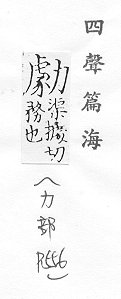 四聲篇海
勮
渠據切
務也
(力部 P.556)